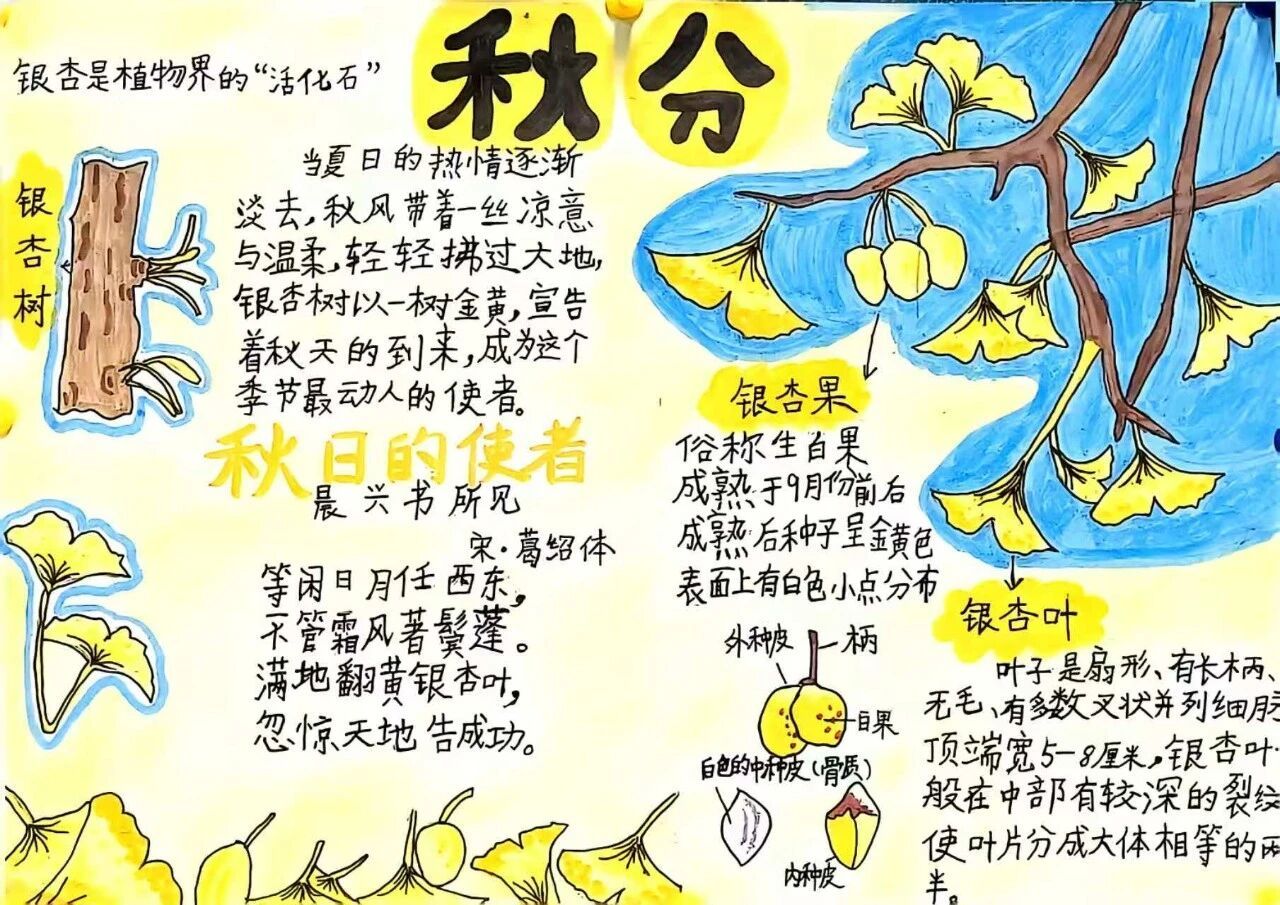 秋分
银杏是植物界的“活化石”
银杏树
当夏日的热情逐渐
淡去,秋风带着一丝凉意
与温柔,轻轻拂过大地,
银杏树以一树金黄,宣告
着秋天的到来,成为这个
季节最动人的使者。
秋日的使者
晨兴书所见
宋·葛绍体
等闲日月任西东,
不管霜风著鬓蓬。
满地翻黄银杏叶,
忽惊天地告成功。
银杏果
俗称生白果
成熟于9月份前后
成熟后种子呈金黄色
表面上有白色小点分布
外种皮
柄
白果
白色的中种皮(骨质)
内种皮
银杏叶
叶子是扇形、有长柄、
无毛、有多数叉状并列细脉
顶端宽5-8厘米,银杏叶
般在中部有较深的裂纹
使叶片分成大体相等的两
半。